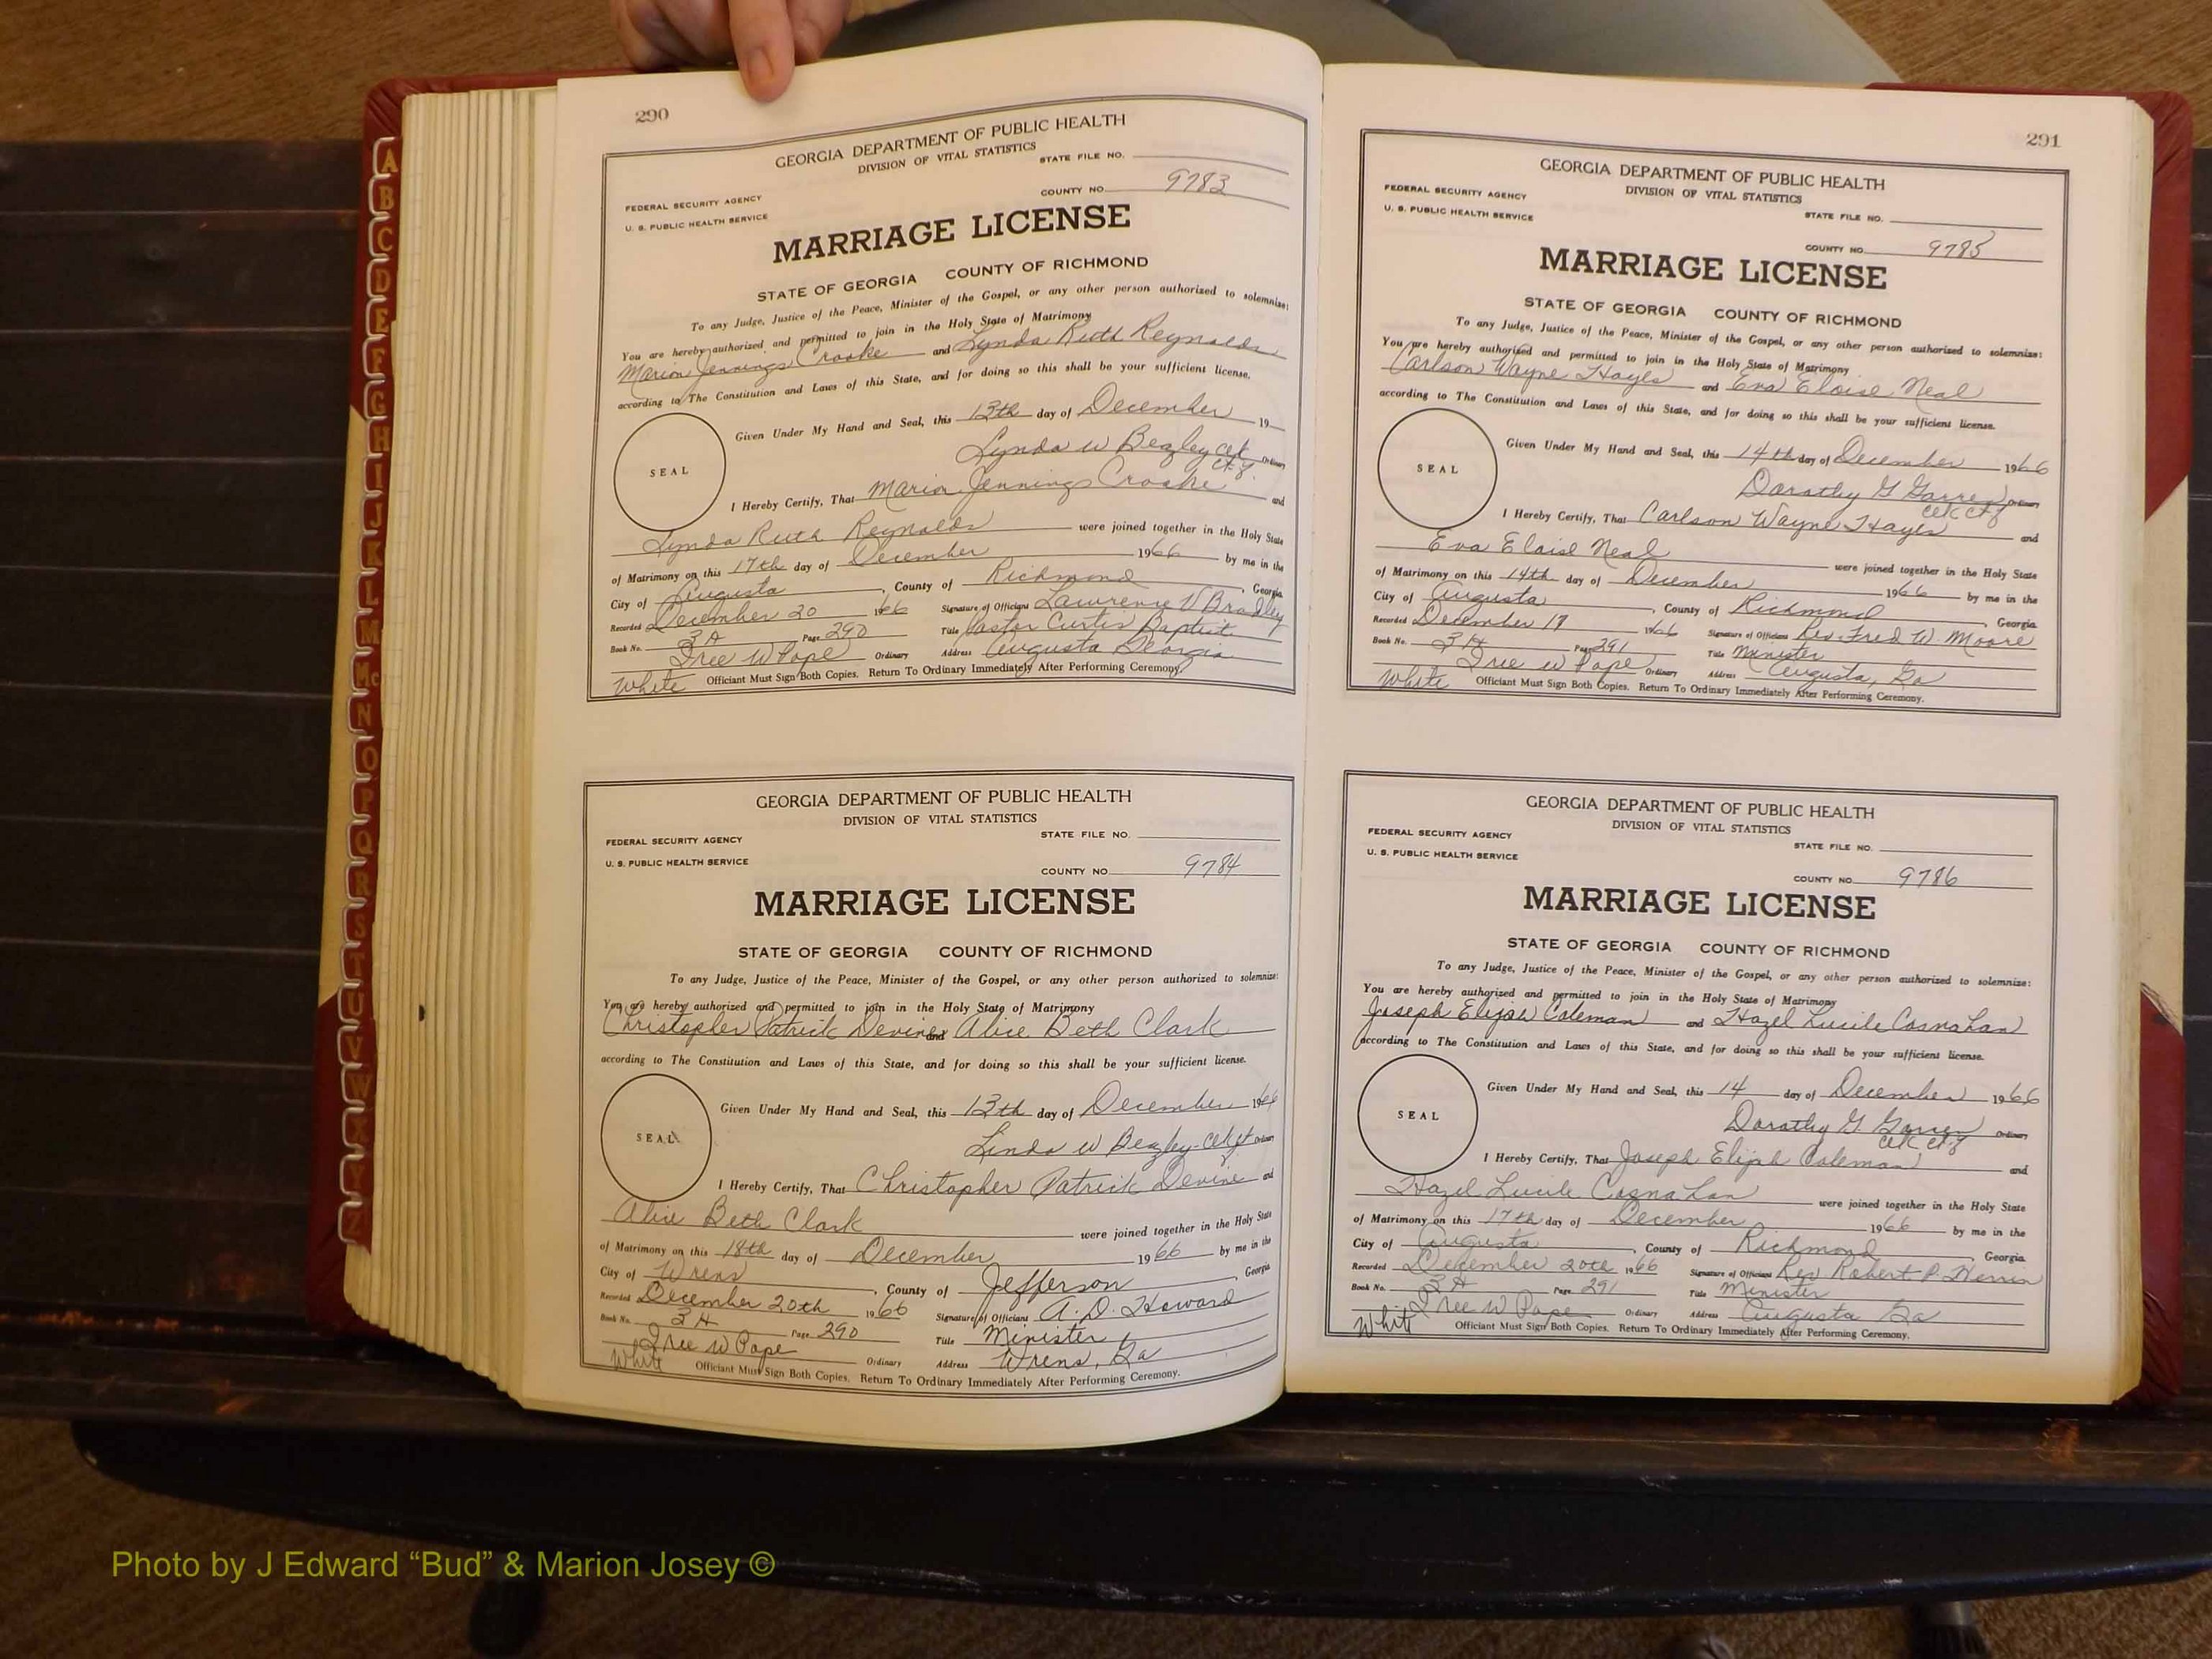 290
GEORGIA DEPARTMENT OF PUBLIC HEALTH
DIVISION OF VITAL STATISTICS
STATE FILE NO.
FEDERAL SECURITY AGENCY
U. S. PUBLIC HEALTH SERVICE
COUNTY NO. 9783
MARRIAGE LICENSE
STATE OF GEORGIA COUNTY OF RICHMOND
To any Judge, Justice of the Peace, Minister of the Gospel, or any other person authorized to solemnize:
You are hereby authorized and permitted to join in the Holy State of Matrimony
Marion Jennings Crooke and Lynda Ruth Reynolds
according to The Constitution and Laws of this State, and for doing so this shall be your sufficient license.
Given Under My Hand and Seal, this 13th day of December 19
SEAL
Lynda W Beazley Clk Ordinary
Ct.
I Hereby Certify, That Marion Jennings Crooke and
Lynda Ruth Reynolds were joined together in the Holy State
of Matrimony on this 17th day of December 1966 by me in the
City of Augusta, County of Richmond, Georgia
Recorded December 20 1966 Signature of Officiant Lawrence V Bradley
Book No. 3A Page 290 Title Pastor Curtis Baptist
Iree W Pope Ordinary Address Augusta Georgia
White Officiant Must Sign Both Copies. Return To Ordinary Immediately After Performing Ceremony.
GEORGIA DEPARTMENT OF PUBLIC HEALTH
DIVISION OF VITAL STATISTICS
FEDERAL SECURITY AGENCY
STATE FILE NO.
U. S. PUBLIC HEALTH SERVICE
COUNTY NO. 9784
MARRIAGE LICENSE
STATE OF GEORGIA COUNTY OF RICHMOND
To any Judge, Justice of the Peace, Minister of the Gospel, or any other person authorized to solemnize:
You are hereby authorized and permitted to join in the Holy State of Matrimony
Christopher Patrick Devine and Alice Beth Clark
according to The Constitution and Laws of this State, and for doing so this shall be your sufficient license.
Given Under My Hand and Seal, this 13th day of December 1966
SEAL
Linda W Beazley Clk Ct Ordinary
I Hereby Certify, That Christopher Patrick Devine and
Alice Beth Clark were joined together in the Holy State
of Matrimony on this 18th day of December 1966 by me in the
City of Wrens, County of Jefferson, Georgia
Recorded December 20th 1966 Signature of Officiant A. D. Howard
Book No. 3A Page 290 Title Minister
Iree W Pope Ordinary Address Wrens, Ga
White Officiant Must Sign Both Copies. Return To Ordinary Immediately After Performing Ceremony.
291
GEORGIA DEPARTMENT OF PUBLIC HEALTH
DIVISION OF VITAL STATISTICS
FEDERAL SECURITY AGENCY
U. S. PUBLIC HEALTH SERVICE
STATE FILE NO.
COUNTY NO. 9785
MARRIAGE LICENSE
STATE OF GEORGIA COUNTY OF RICHMOND
To any Judge, Justice of the Peace, Minister of the Gospel, or any other person authorized to solemnize:
You are hereby authorized and permitted to join in the Holy State of Matrimony
Carlson Wayne Hayes and Eva Eloise Neal
according to The Constitution and Laws of this State, and for doing so this shall be your sufficient license.
Given Under My Hand and Seal, this 14th day of December 1966
SEAL
Dorothy G Garren Ordinary
Clk Ct
I Hereby Certify, That Carlson Wayne Hayes and
Eva Eloise Neal were joined together in the Holy State
of Matrimony on this 14th day of December 1966 by me in the
City of Augusta, County of Richmond, Georgia
Recorded December 19 1966 Signature of Officiant Rev. Fred W. Moore
Book No. 3A Page 291 Title Minister
Iree W Pope Ordinary Address Augusta, Ga
White Officiant Must Sign Both Copies. Return To Ordinary Immediately After Performing Ceremony.
GEORGIA DEPARTMENT OF PUBLIC HEALTH
DIVISION OF VITAL STATISTICS
FEDERAL SECURITY AGENCY
STATE FILE NO.
U. S. PUBLIC HEALTH SERVICE
COUNTY NO. 9786
MARRIAGE LICENSE
STATE OF GEORGIA COUNTY OF RICHMOND
To any Judge, Justice of the Peace, Minister of the Gospel, or any other person authorized to solemnize:
You are hereby authorized and permitted to join in the Holy State of Matrimony
Joseph Elijah Coleman and Hazel Lucile Carnahan
according to The Constitution and Laws of this State, and for doing so this shall be your sufficient license.
Given Under My Hand and Seal, this 14 day of December 1966
SEAL
Dorothy G Garren Ordinary
Clk Ct
I Hereby Certify, That Joseph Elijah Coleman and
Hazel Lucile Carnahan were joined together in the Holy State
of Matrimony on this 17th day of December 1966 by me in the
City of Augusta, County of Richmond, Georgia
Recorded December 20th 1966 Signature of Officiant Rev Robert P. Herrin
Book No. 3A Page 291 Title Minister
Iree W Pope Ordinary Address Augusta Ga
White Officiant Must Sign Both Copies. Return To Ordinary Immediately After Performing Ceremony.
A
B
C
D
E
F
G
H
I
J
K
L
M
Mc
N
O
P
Q
R
S
T
U
V
W
X
Y
Z
Photo by J Edward “Bud” & Marion Josey ©